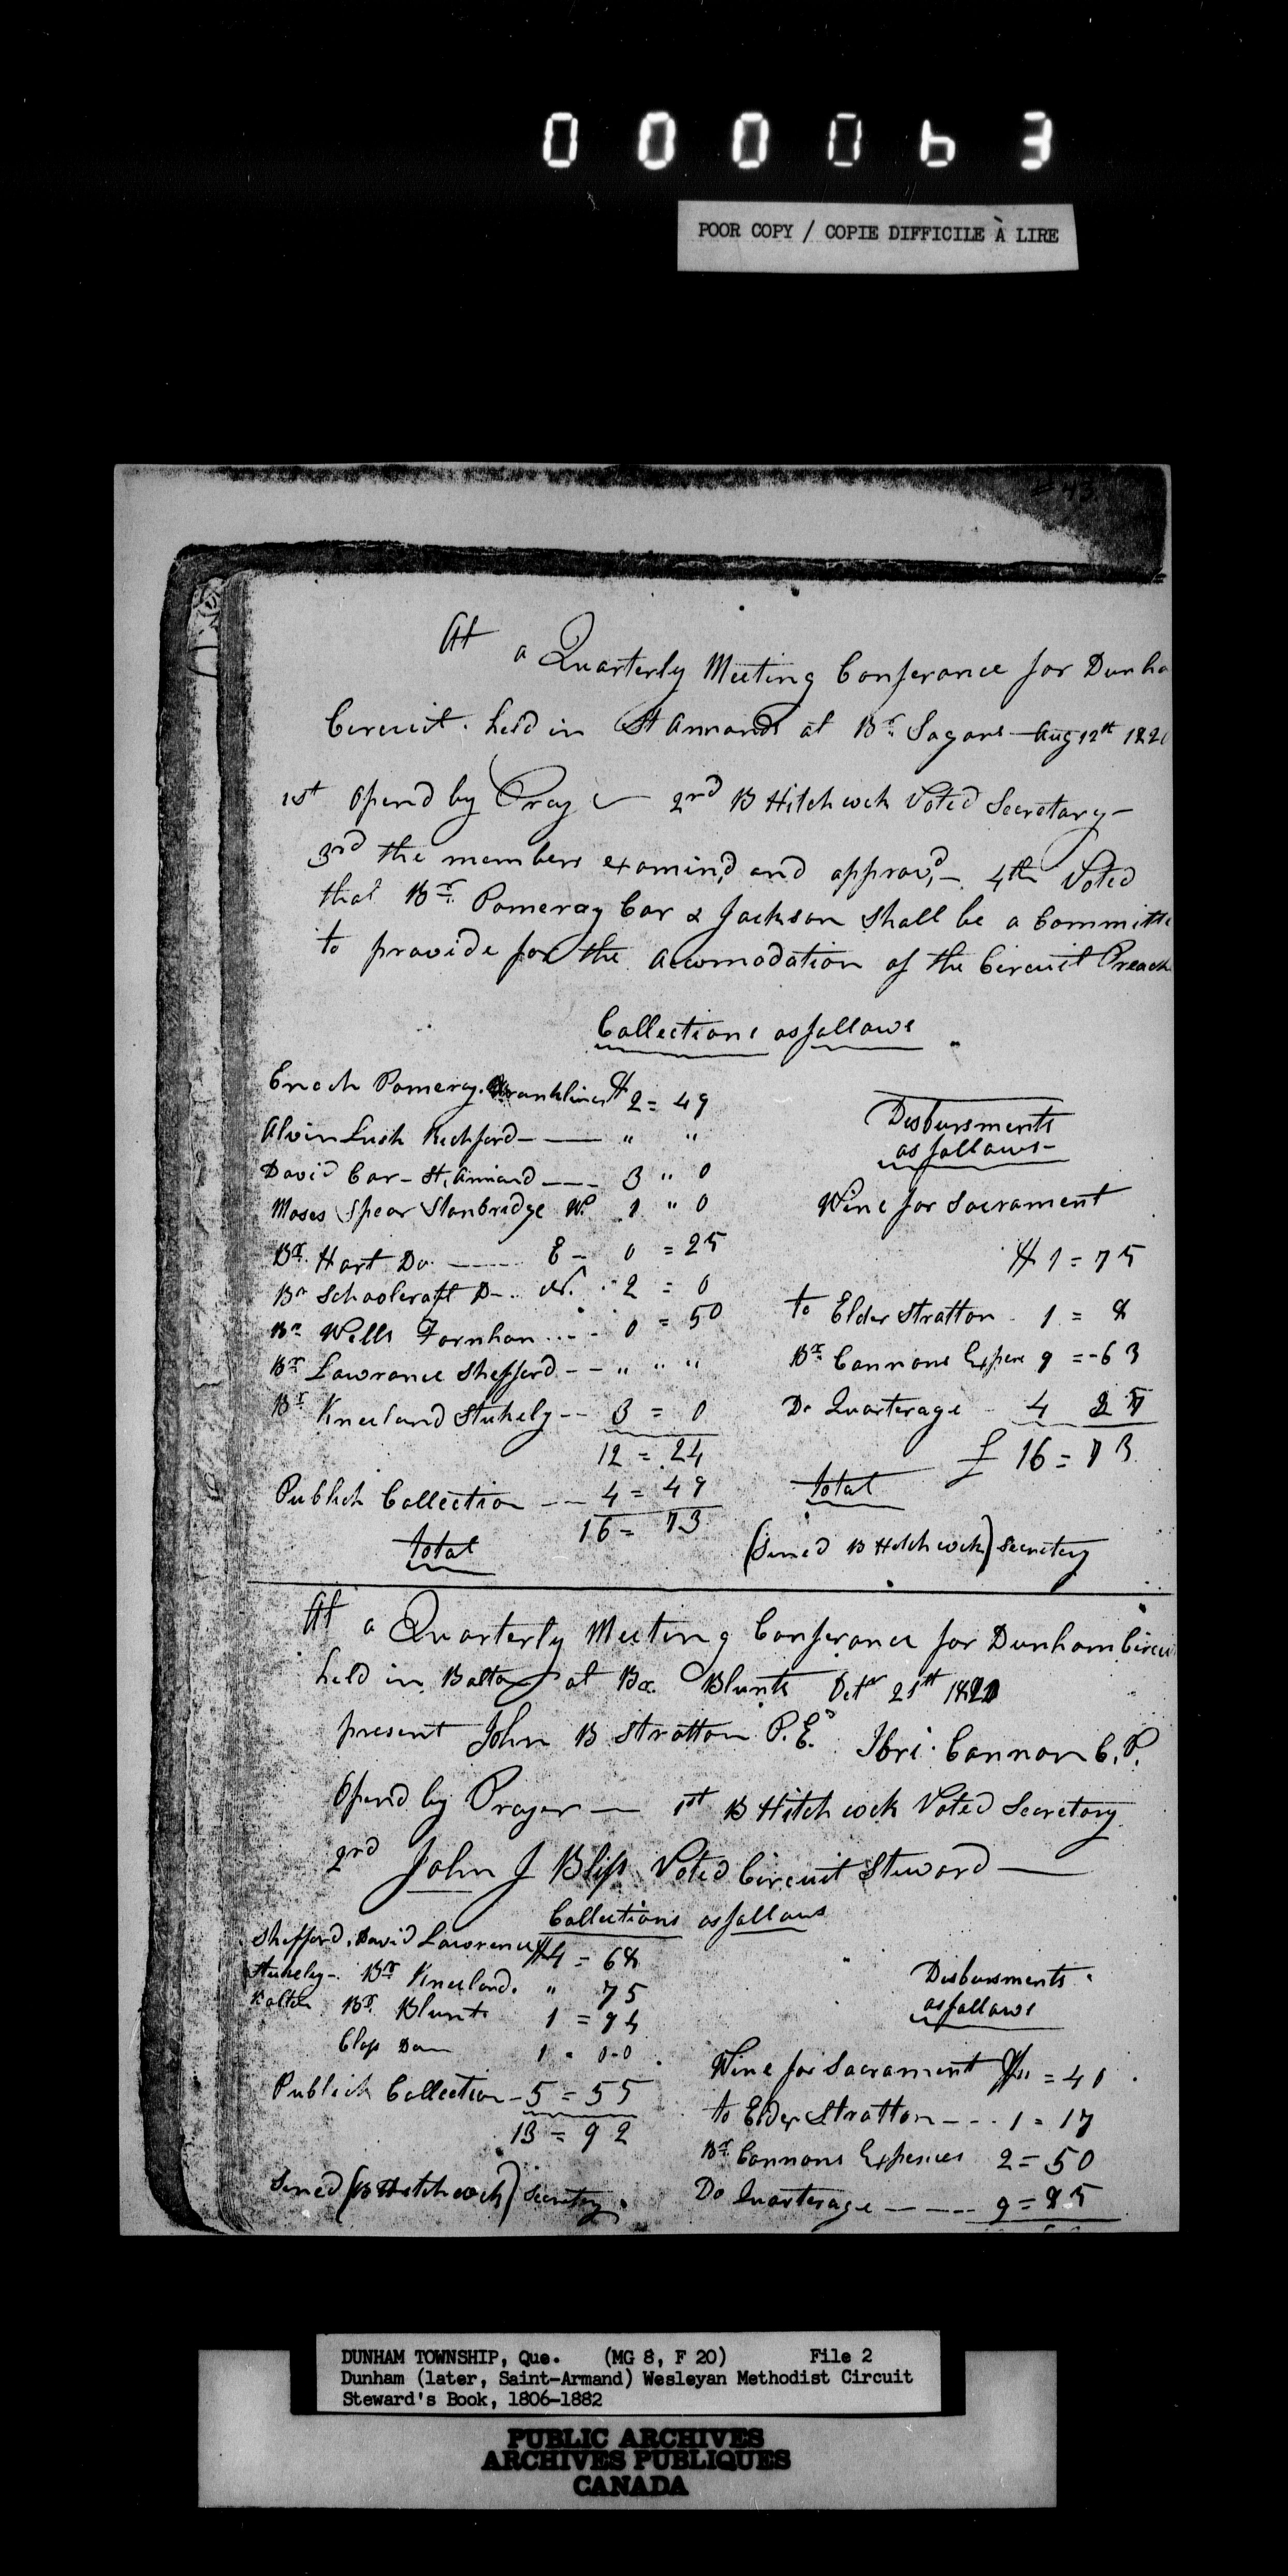 000063
POOR COPY / COPIE DIFFICILE À LIRE
At a Quarterly Meeting Conferance for Dunha
Circuit. held in St Armands at Br. Sagars Aug 12th 182
1st Opend by Pray 2nd B Hitchcock Voted Secretary
3rd the members examin,d and approv,d 4th Voted
that Br. Pomeray Car & Jackson Shall be a Committe
to provide for the accomodation of the Circuit Preach
Collections as follows
Enoch Pomery. Franklin $ 2 = 49
Alvin Lush Richford — " "
David Car - St, Armand — 3 " 0
Moses Spear Stanbridge W. 1 " 0
Br. Hart Do — E - 0 = 25
Br Schoolcraft D- 2 = 0
Br Wells Farnham - 0 = 50
Br Lawrance Shefford - - " " "
Br Kneeland Stukely - - 3 = 0
12 = 24
Publick Collection - - 4 = 49
16 = 73
total
Disbursments
as follows -
Wine for Sacrament
$ 1 = 75
to Elder Stratton 1 = 8
Br. Cannons Expens 9 = 63
Do Quarterage 4
16 = 73
total
(Sined B Hitchcock) Secretary
At a Quarterly Meeting Conferance for Dunham Circu
held in Bolton at Br. Blunts Octr 21st 1820
present John B Stratton P. E. Ibri Cannon C. P.
Opend by Prayer — 1st B Hitchcock Voted Secretary
2nd John J Bliss Voted Circuit Steward —
Collections as follows
Shefford. David Lawrence $4 = 68
Stukely - Br Kneeland. " 75
Bolton Br. Blunts 1 = 94
Class Do 1 = 0-0
Publick Collection - 5 = 55
13 = 92
Sined (B Hitchcock) Secretary
Disbursments
as follows
Wine for Sacrament = 40
to Elder Stratton - - - 1 = 17
Br. Cannons Expences 2 = 50
Do Quarterage — 9 = 85
DUNHAM TOWNSHIP, Que. (MG 8, F 20) File 2
Dunham (later, Saint-Armand) Wesleyan Methodist Circuit
Steward's Book, 1806-1882
PUBLIC ARCHIVES
ARCHIVES PUBLIQUES
CANADA